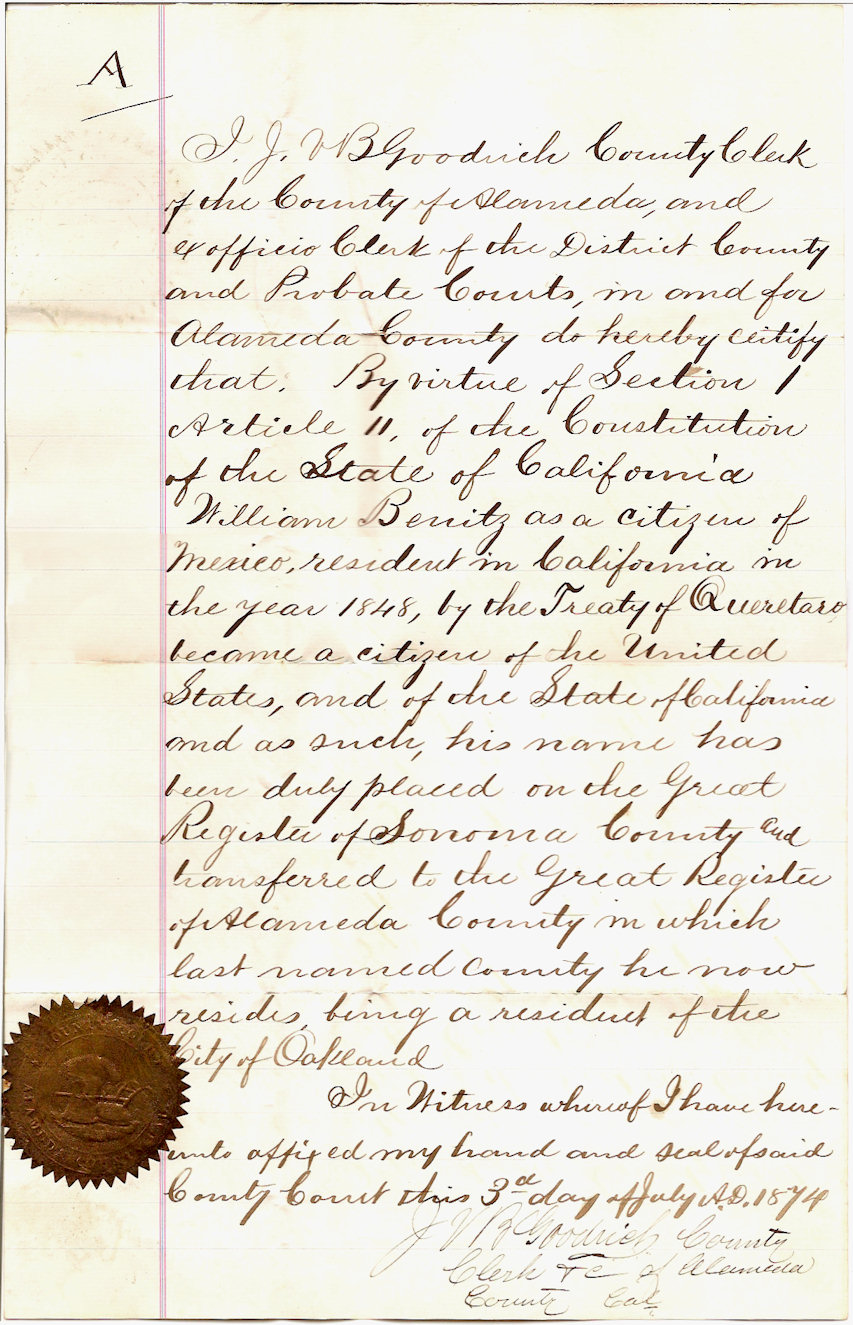 A
I, J. V B Goodrich County Clerk
of the County of Alameda, and
ex officio Clerk of the District County
and Probate Courts, in and for
Alameda County do hereby certify
that. By virtue of Section 1
Article 11, of the Constitution
of the State of California
William Benitz as a citizen of
Mexico, resident in California in
the year 1848, by the Treaty of Queretaro,
became a citizen of the United
States, and of the State of California
and as such, his name has
been duly placed on the Great
Register of Sonoma County and
transferred to the Great Register
of Alameda County in which
last named county he now
resides, being a resident of the
City of Oakland
In Witness whereof I have here-
unto affixed my hand and seal of said
County Court this 3d day of July A.D. 1874
J V B Goodrich County
Clerk &c of Alameda
County Cal